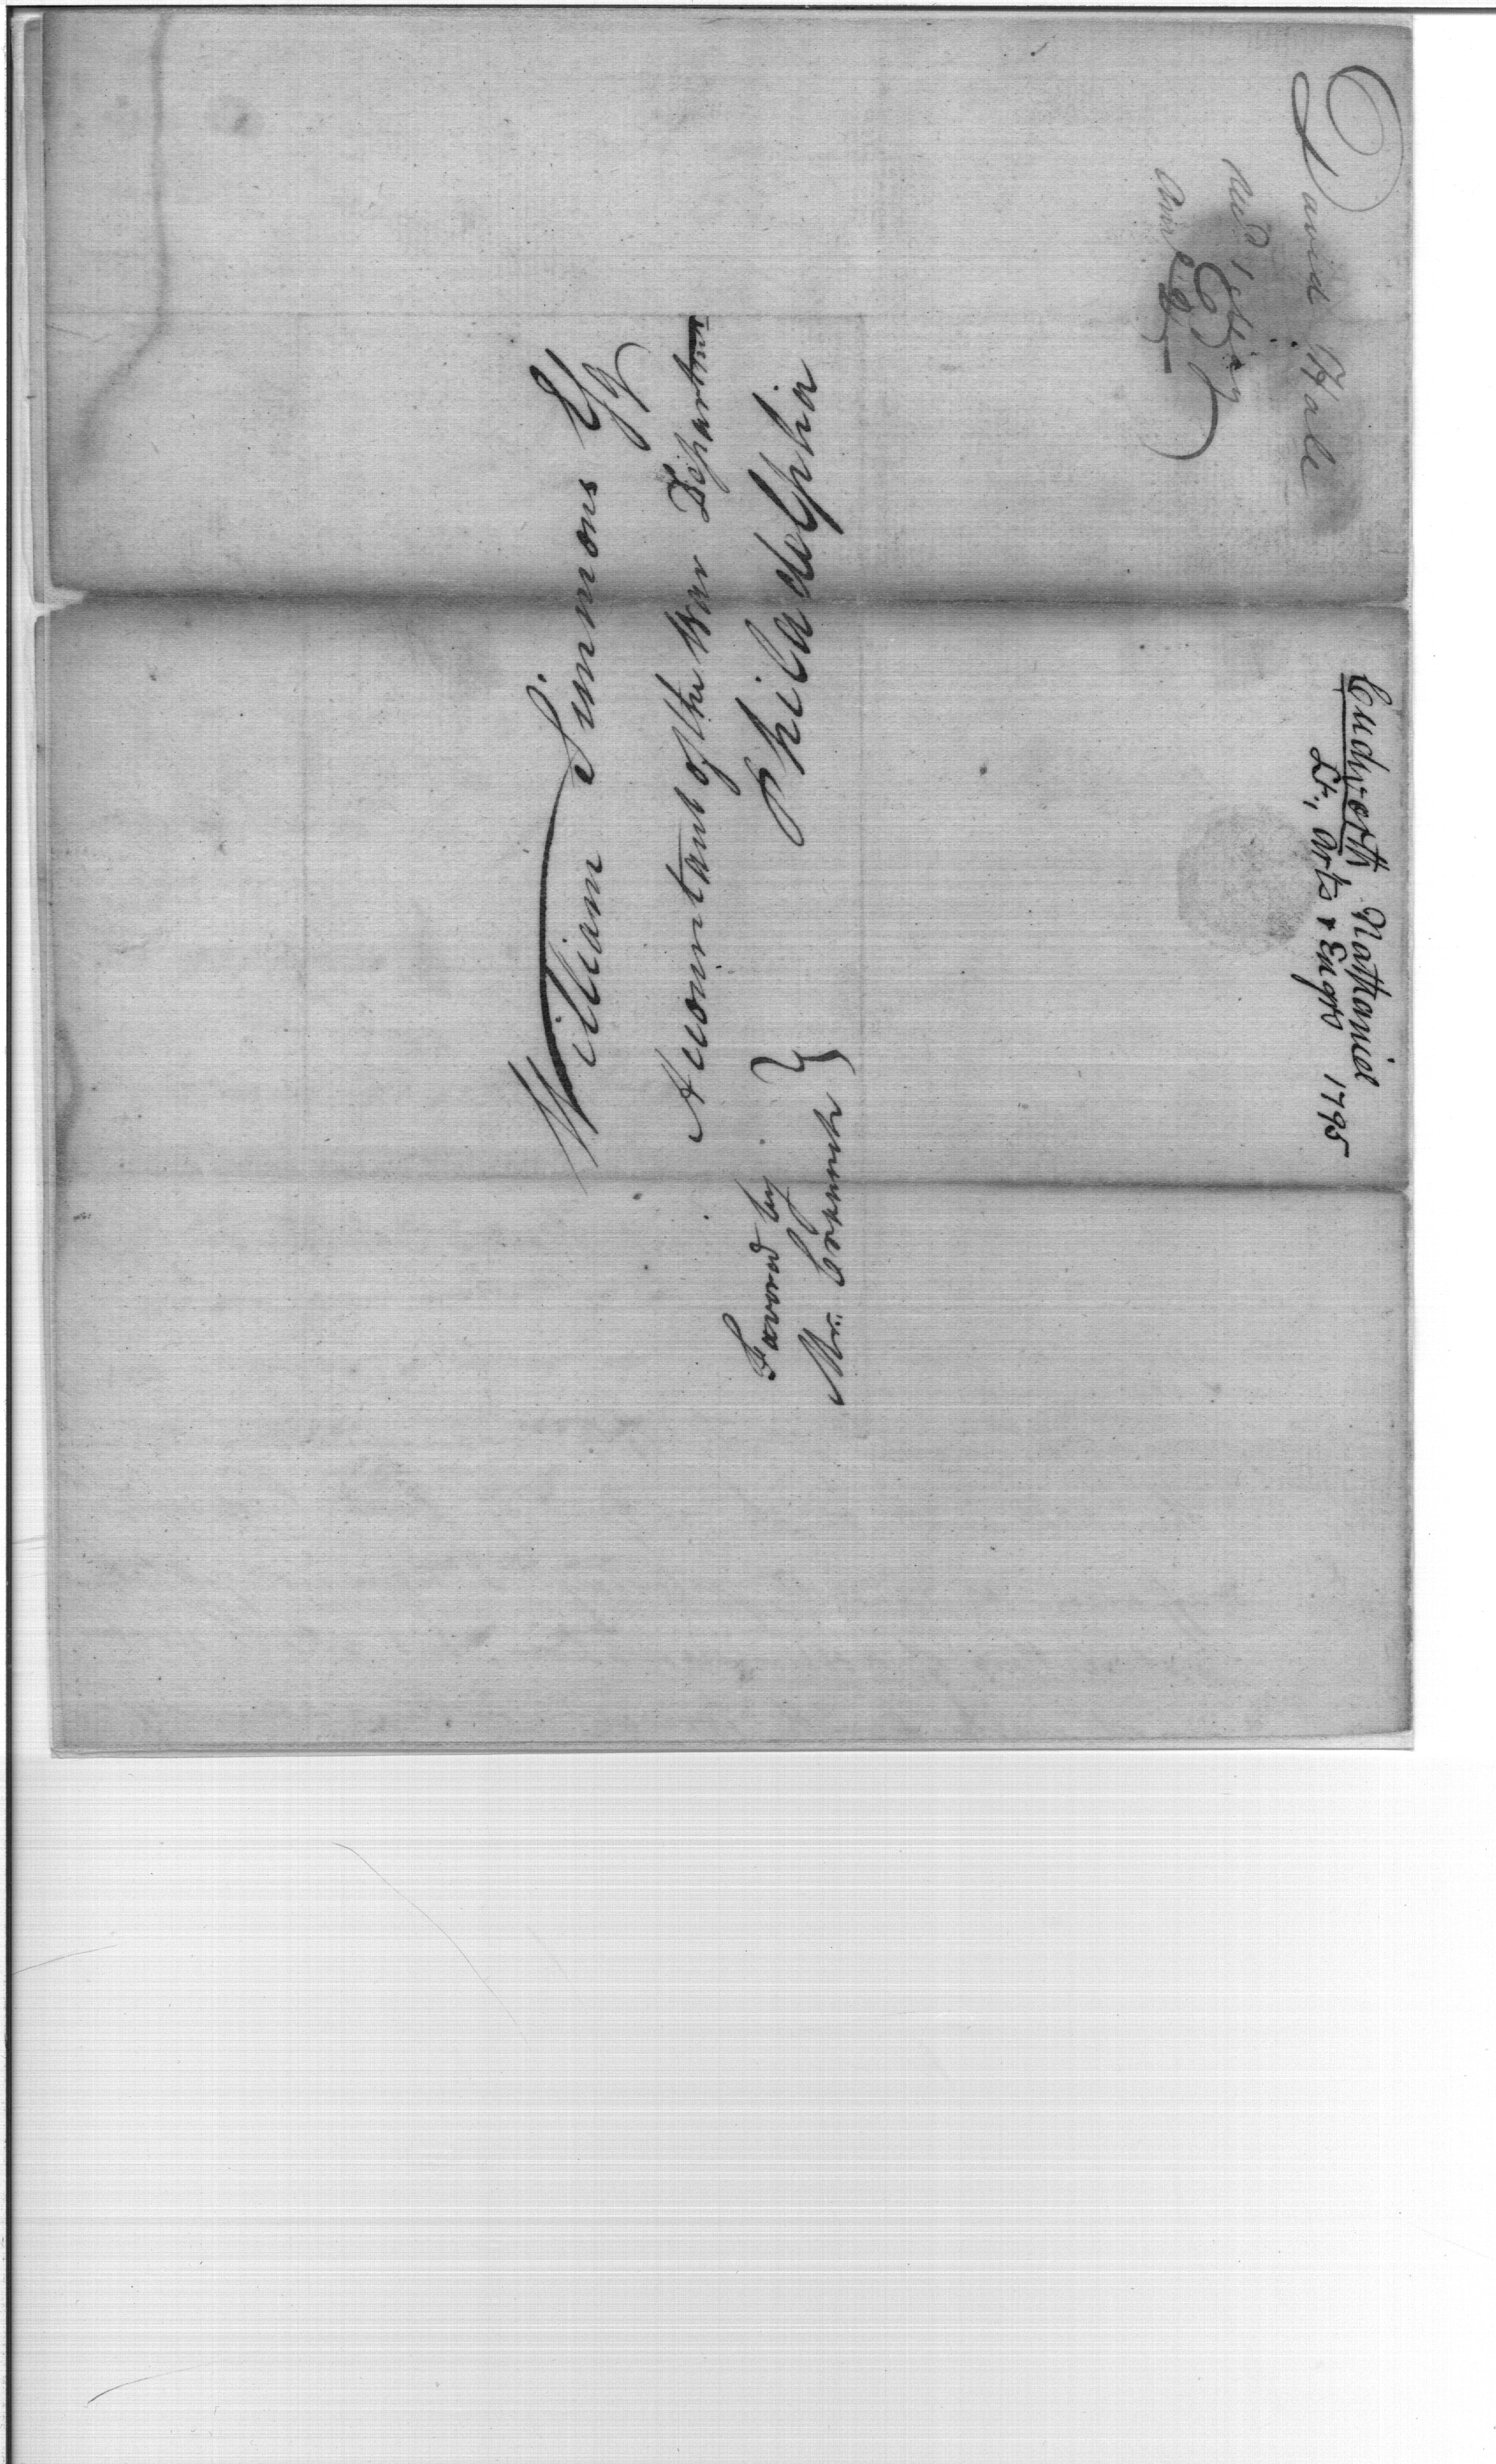 William Simmons Esq
Accountant of the War Department
Philadelphia
Favored by
Mr.
David Hale
Recd
Cudworth, Nathaniel
Lt., Arts & Engrs 1795